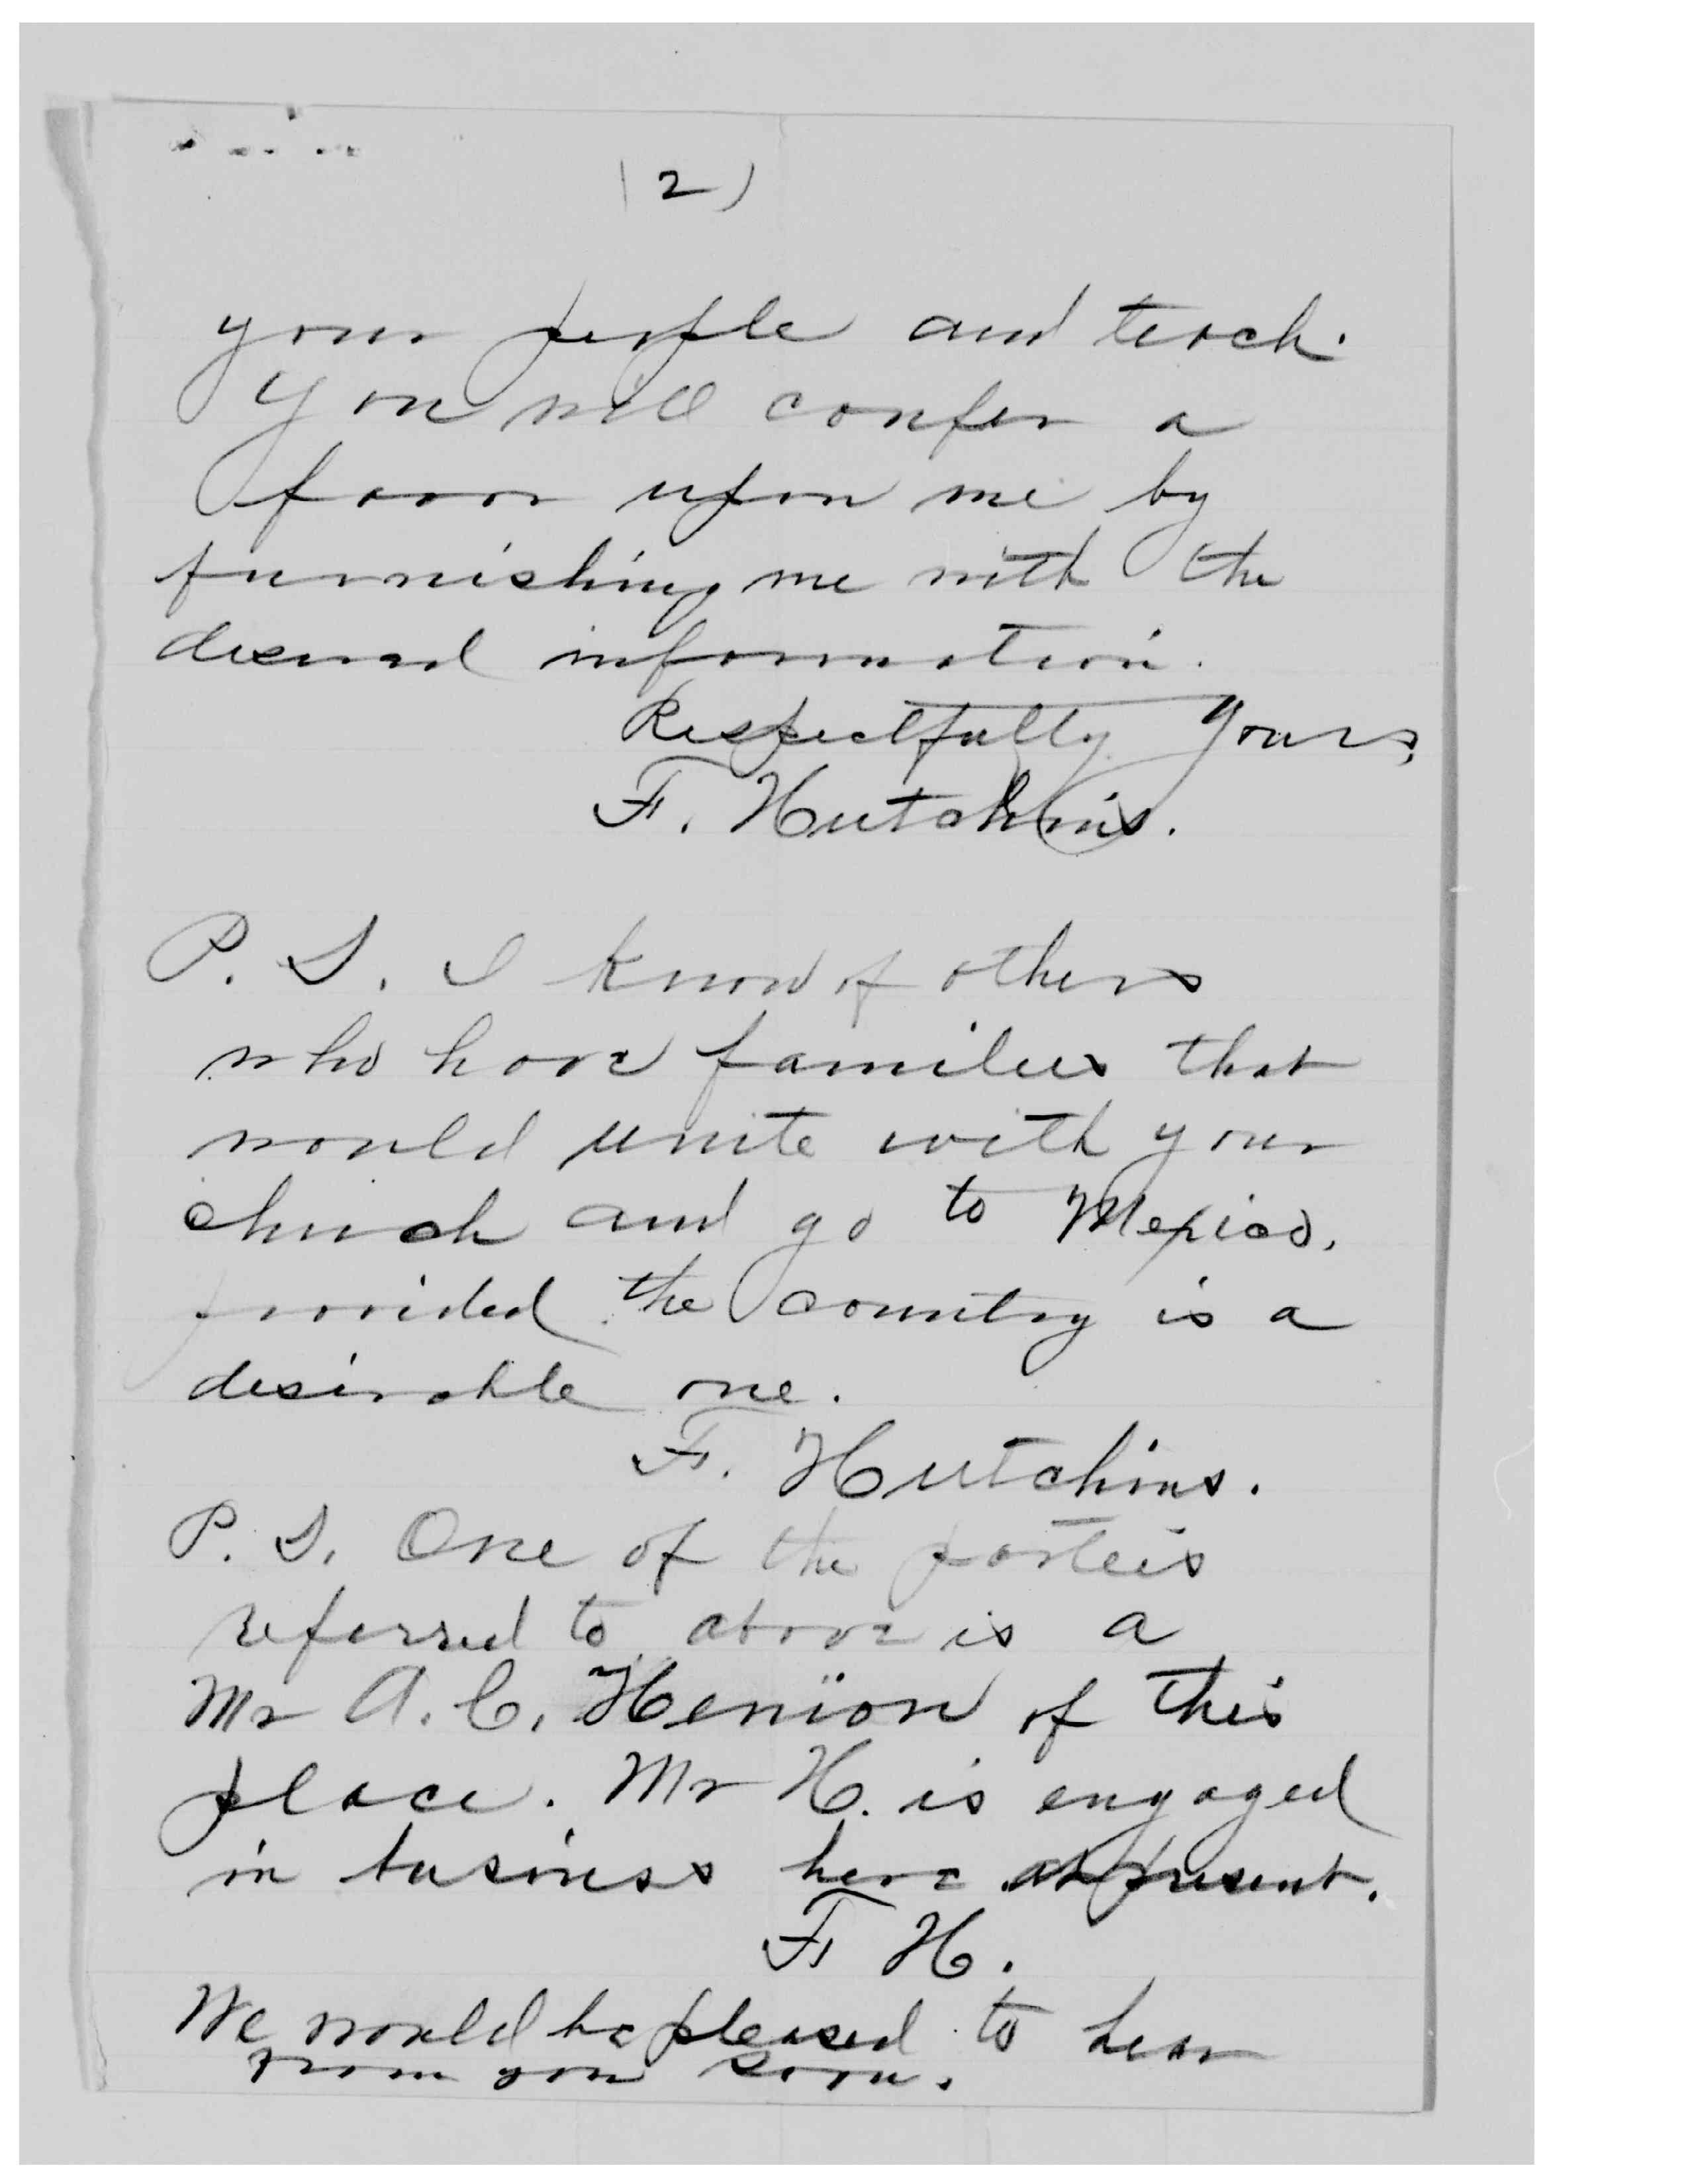 (2)
your people and teach.
You will confer a
favor upon me by
furnishing me with the
desired information.
Respectfully Yours,
F. Hutchins.
P. S. I know of others
who have families that
would unite with your
church and go to Mexico,
provided the country is a
desirable one.
F. Hutchins.
P. S. One of the parteis
referred to above is a
Mr A. C. Henion of this
place. Mr H. is engaged
in business here at present.
F H.
We would be pleased to hear
from you soon.